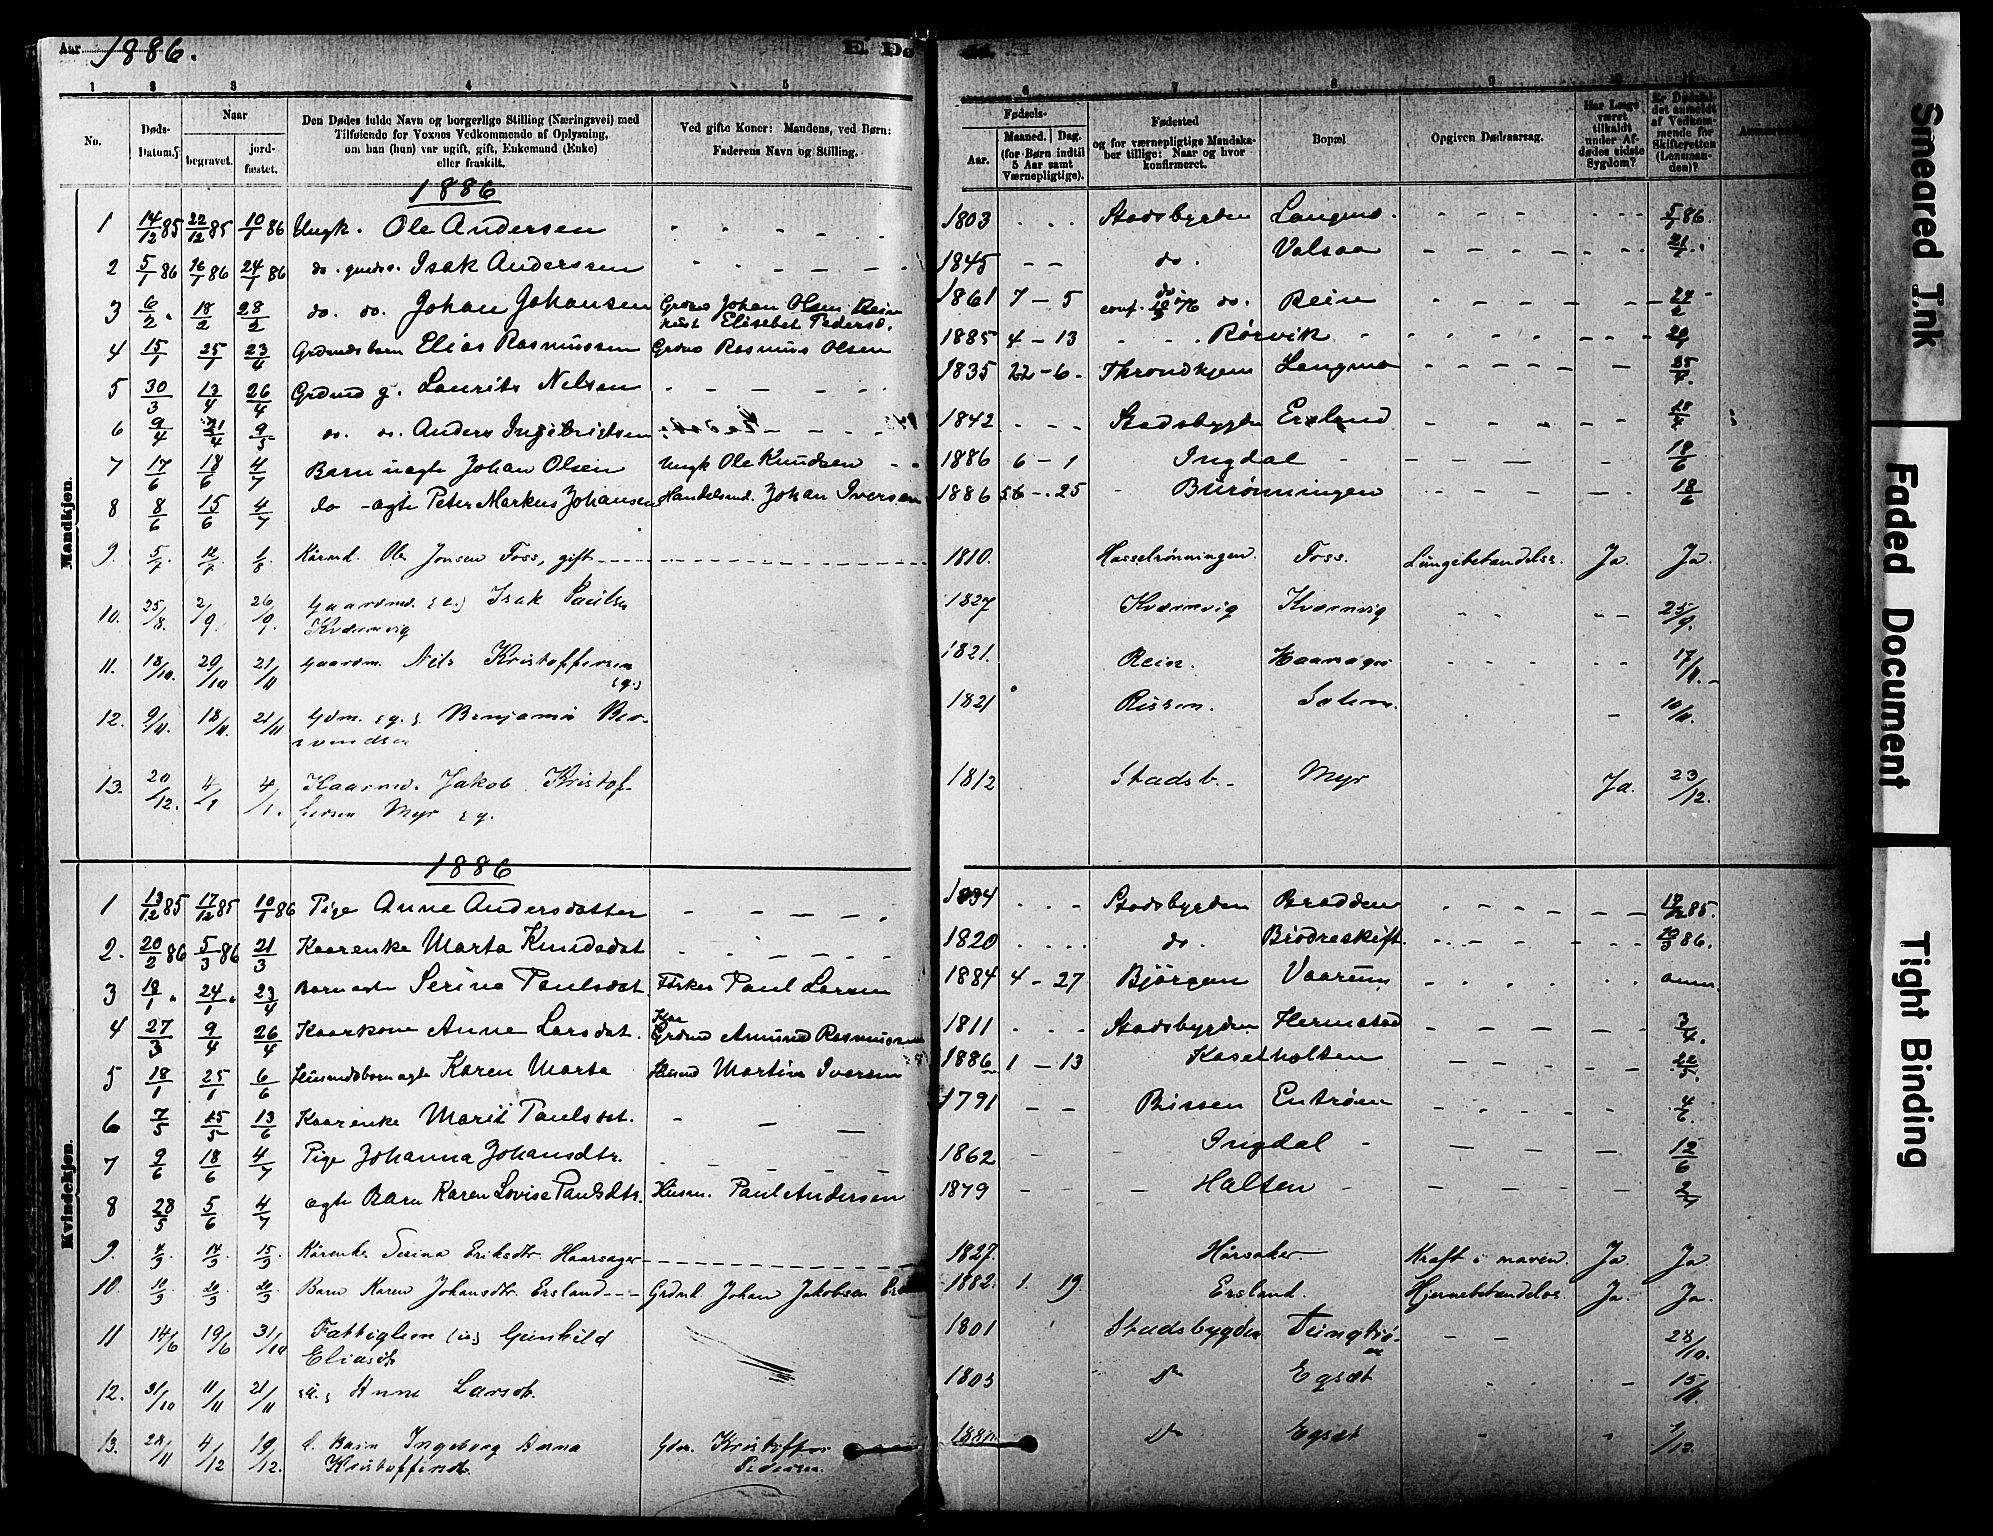 Aar 1886.
E. Dø
1 2 3 4 5 6 7 8 9 10 11
No.
Døds-Datum.
Naar
begravet.
jord-fæstet.
Den Dødes fulde Navn og borgerlige Stilling (Næringsvei) med
Tilføiende for Voxnes Vedkommende af Oplysning,
om han (hun) var ugift, gift, Enkemand (Enke)
eller fraskilt.
Ved gifte Koner: Mandens, ved Børn:
Faderens Navn og Stilling.
Fødsels-
Aar.
Maaned. Dag.
(for Børn indtil
5 Aar samt
Værnepligtige).
Fødested
og for værnepligtige Mandska-
ber tillige: Naar og hvor
konfirmeret.
Bopæl
Opgiven Dødsaarsag.
Har Læge
været
tilkaldt
under Af-
dødes sidste
Sygdom?
Er Dødsfal-
det anmeldt
af Vedkom-
mende for
Skifteretten
(Lensman-
den)?
Mandkjøn.
1886
1 14/12 85 22/12 85 10/1 86 Ungk. Ole Andersen 1803 Stadsbygden Langmo. 5/1 86.
2 5/1 86 16/1 86 24/1 86 do. gmds. Isak Anderssen 1845 do. Valsaa 21/1
3 6/2 18/2 28/2 do. do. Johan Johansen Grdmd Johan Olsen Rein 1861 7 - 5 do. Rein 24/2
Elisebet Pedersd.
4 15/1 25/1 23/4 Grdmdsbarn Elias Rasmussen Grdmd Rasmus Olsen 1885 4 - 13 Rørvik
5 30/3 13/4 26/4 Grdmd g. Laurits Nelsen 1835 22 - 6 Throndhjem Langmo 25/4.
6 9/4 21/4 9/5 do. do. Anders Ingebrigtsen 1842 Stadsbygden Ersland
7 17/6 18/6 4/7 Barn uægte Johan Olsen Ungk Ole Knudsen 1886 6 - 1 Ingdal 18/6
8 8/6 15/6 4/7 do - ægte Peter Markus Johansen Handelsmd. Johan Iversen 1886 56 - 25 Burønningen 18/6
9. 5/7 12/7 1/8 Kårmd. Ole Jonsen Foss, gift 1810. Hasselrønningen. Foss. Lungebetændelse. Ja Ja
10. 25/8. 2/9. 26/9. Gaardmd. (e.) Isak Paulsen 1827 Kvernvig Kvernvig 25/9.
Kværnvig
11. 18/10. 29/10 21/11 Gaardm. Nils Kristoffersen 1821. Rein. Haarsager 17/11.
(g.)
12. 9/11. 18/11. 21/11 Gdm. (g.) Benjamin Ber- 1821 Rissen. Solem. 10/11.
13. 20/12. 4/1 4/1. Kaarmd. Jakob Kristof- 1812 Stadsb. Myr Ja. 23/12.
fersen Myr g.
Kvindekjøn.
1886
1 13/12 85 17/12 85 10/1 86 Pige Anne Andersdatter Stadsbygden Bradden 85.
2. 20/2 86 5/3 86 21/3 Kaarenke Marta Knudsdat 1820 do. Brødreskift 10/3 86.
3 18/1 24/1 23/4 Barn ægte Serina Paulsdat. Fisker Paul Larsen 1884 4 - 27 Bjørgan Vaarum anm.
4 27/3 9/4 26/4 Kaarkone Anne Larsdat. Kaar Grdmd Amund Rasmussen 1811 Stadsbygden Hermstad 3/4.
5 18/1 25/1 6/6 Husmdsbarn ægte Karen Marta Husmd Martin Iversen 1886 1 - 13 Kasetholten 22/5.
6 7/5 15/5 13/6 Kaarenke Marit Paulsdat. 1791 Rissen Entrøen 4/6.
7 9/6 18/6 4/7 Pige Johanna Johansdtr. 1862 Ingdal 12/6
8 28/5 5/6 4/7 ægte Barn Karen Lovise Paulsdtr. Husm. Paul Andersen 1879 Halten 2/7
9. 4/3 14/3 15/3 Kårenke Serina Eriksdtr. Haarsager 1827. Hårsaker Kræft i maven. Ja Ja
10. Barn Karen Johansdtr. Ersland Grdmd. Johan Jakobsen 1882. 1. 19. Ersland. Hjernebetændelse Ja. Ja.
11 14/6 19/6 31/10 Fattiglem (u) Gunhild 1801 Stadsbygden 28/10.
Eliasdt
12. 31/10 11/11 21/11 (u.) Anne Larsdt. 1803 Do Egsæt 15/11.
13. 28/11 4/12 19/12. Barn Ingeborg Anna Gdm. Kristoffer Do Egsæt 7/12.
Kristoffersdt. Pedersen.
Smeared Ink
Faded Document
Tight Binding